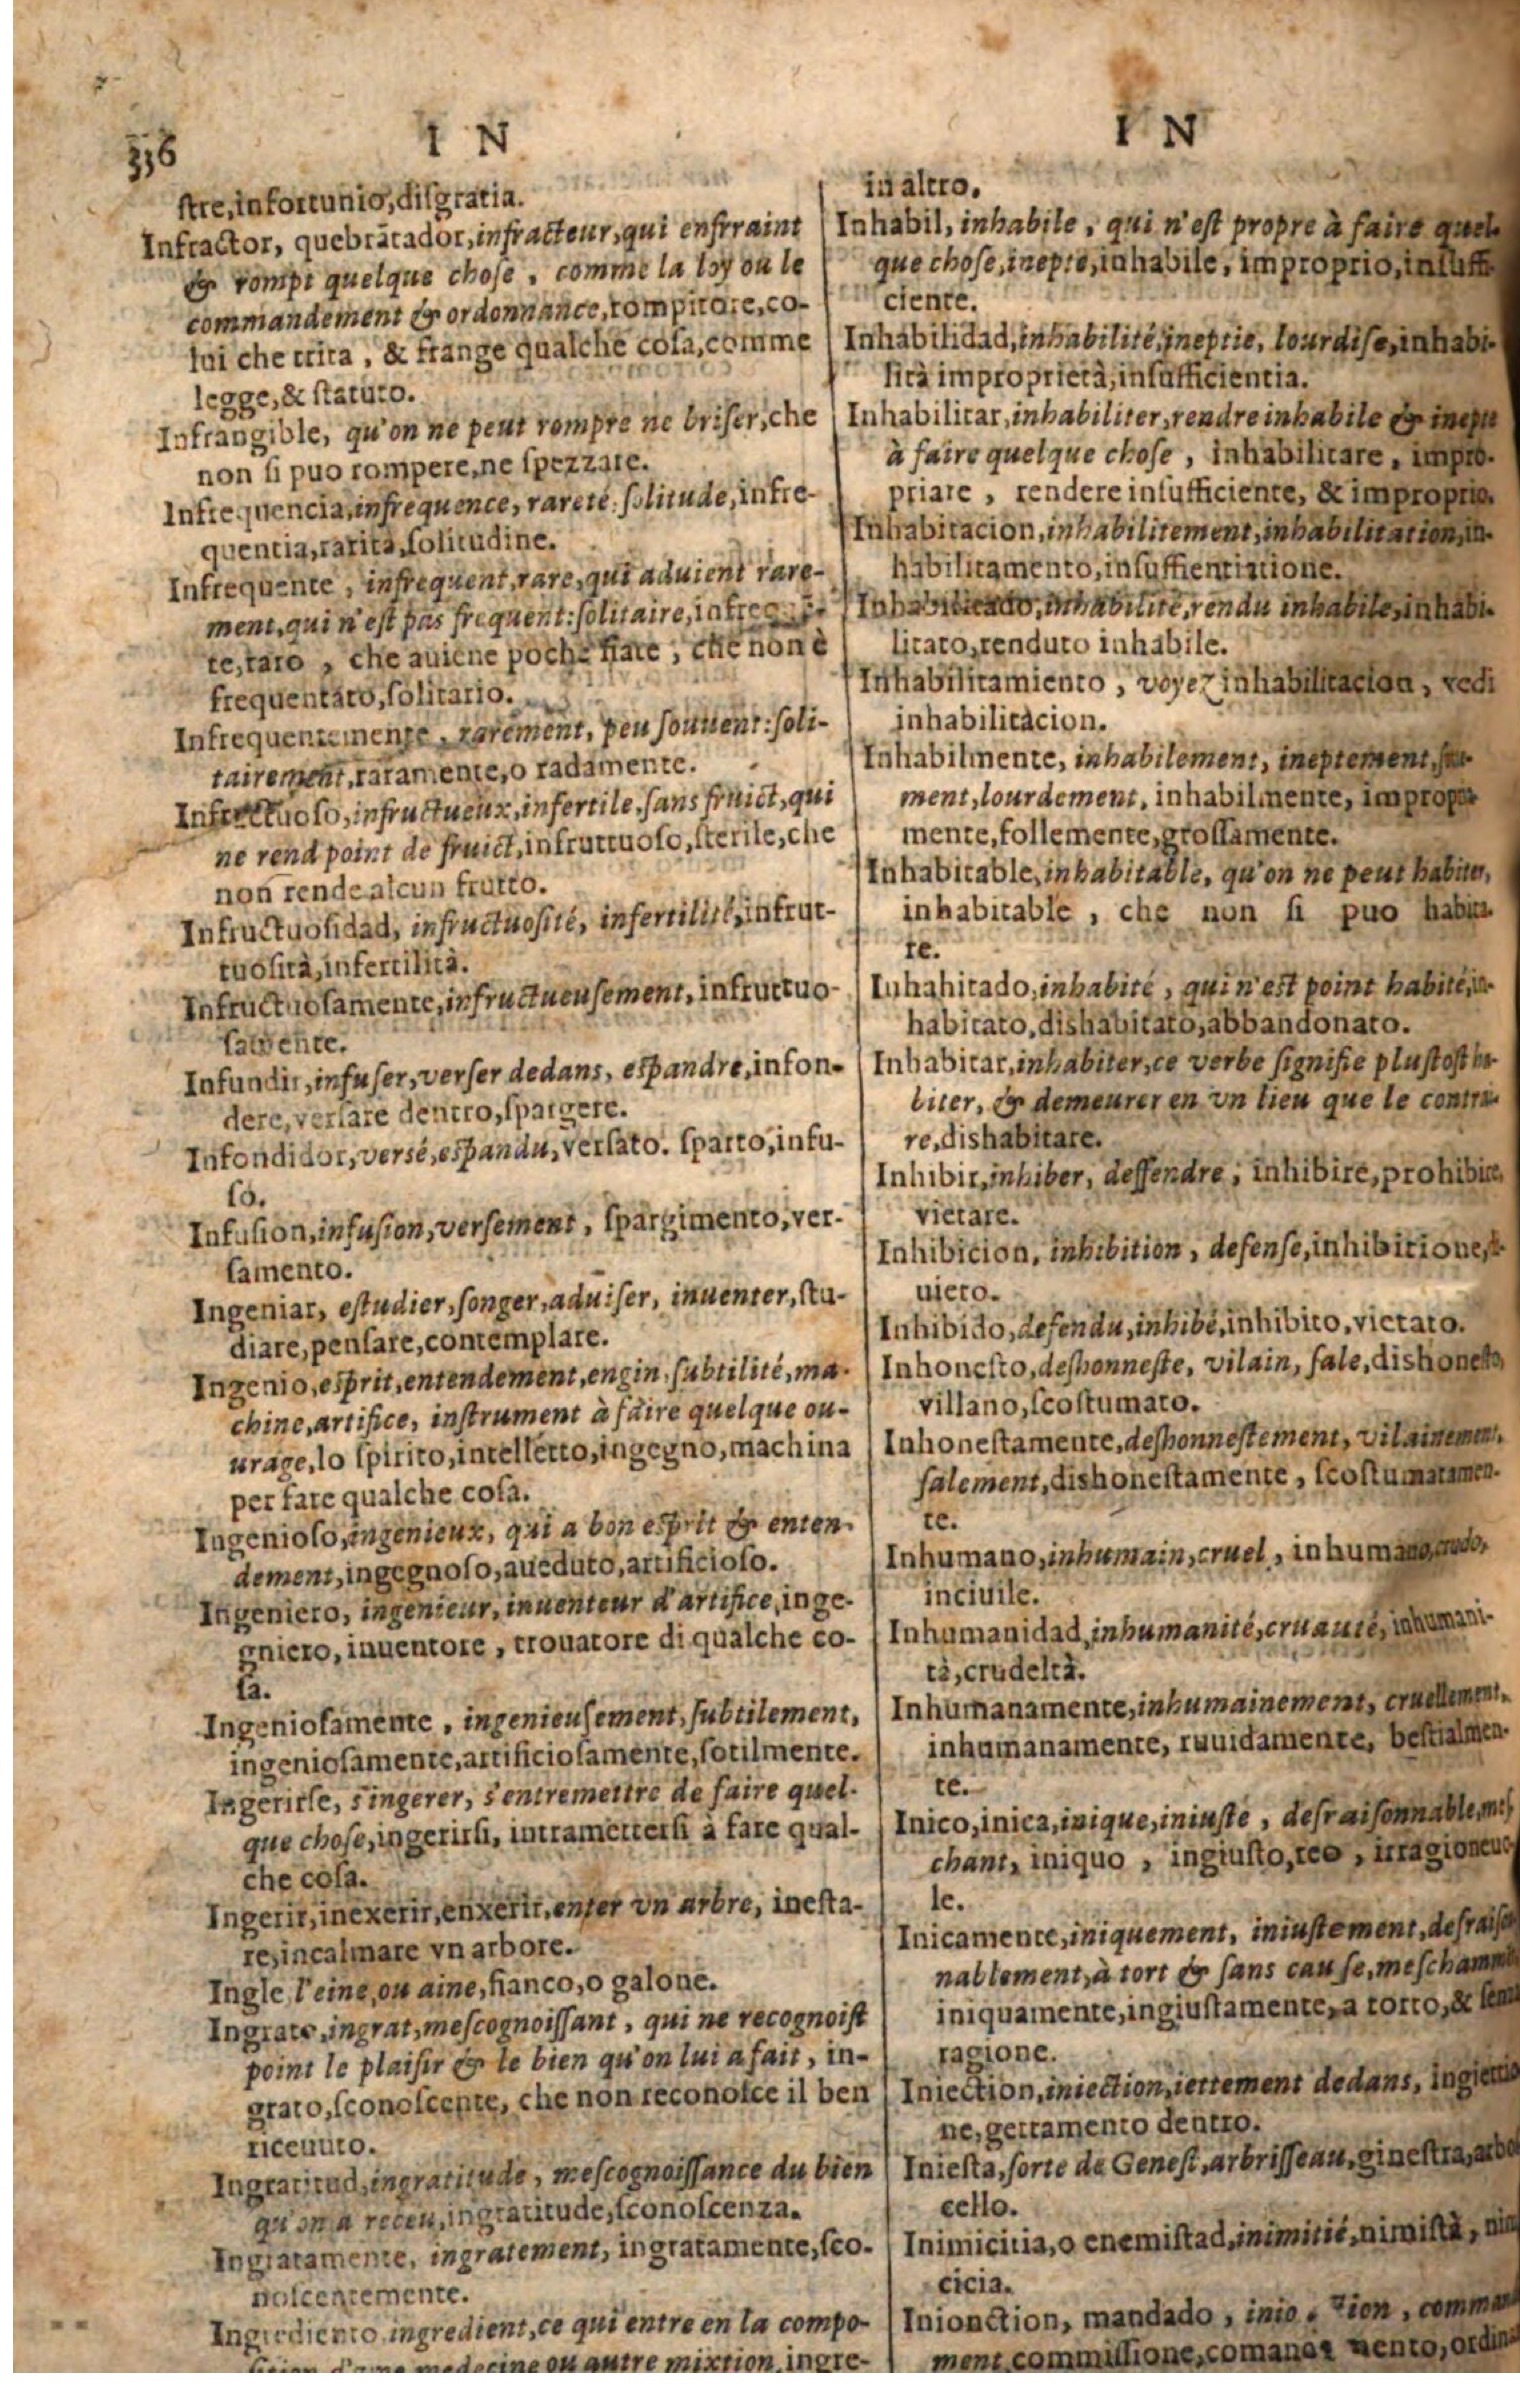 336
I N
ſtre,infortunio,diſgratia.
Infractor, quebrãtador,infracteur,qui enfrraint
& rompt quelque choſe, comme la loy ou le
commandement & ordonnance,rompitore,co-
lui che trita, & frange qualche coſa,comme
legge,& ſtatuto.
Infrangible, qu'on ne peut rompre ne briſer,che
non ſi puo rompere,ne ſpezzare.
Infrequencia,infrequence, rareté:ſolitude,infre-
quentia,rarità,ſolitudine.
Infrequente, infrequent,rare,qui aduient rare-
ment,qui n'eſt pas frequent:ſolitaire,
te,raro, che auiene poche fiate, che non è
frequentato,ſolitario.
Infrequentemente, rarement, peu ſouuent:ſoli-
tairement,raramente,o radamente.
Infructuoſo,infructueux,infertile,ſans fruict,qui
ne rend point de fruict,infruttuoſo,ſterile,che
non rende alcun frutto.
Infructuoſidad, infructuoſité, infertilité,infrut-
tuoſità,infertilità.
Infructuoſamente,infructueuſement,infruttuo-
ſamente.
Infundir,infuſer,verſer dedans, eſpandre,infon-
dere,verſare dentro,ſpargere.
Infondidor,verſé,eſpandu,verſato. ſparto,infu-
ſo.
Infuſion,infuſion,verſement, ſpargimento,ver-
ſamento.
Ingeniar, eſtudier,ſonger,aduiſer, inuenter,ſtu-
diare,penſare,contemplare.
Ingenio,eſprit,entendement,engin,ſubtilité,ma-
chine,artifice, inſtrument à faire quelque ou-
urage,lo ſpirito,intelletto,ingegno,machina
per fare qualche coſa.
Ingenioſo,ingenieux, qui a bon eſprit & enten-
dement,ingegnoſo,aueduto,artificioſo.
Ingeniero, ingenieur,inuenteur d'artifice,inge-
gniero,inuentore, trouatore di qualche co-
ſa.
Ingenioſamente, ingenieuſement,ſubtilement,
ingenioſamente,artificioſamente,ſotilmente.
Ingerirſe, s'ingerer, s'entremettre de faire quel-
que choſe,ingerirſi, intrametterſi à fare qual-
che coſa.
Ingerir,inexerir,enxerir,enter vn arbre, ineſta-
re,incalmare vn arbore.
Ingle l'eine,ou aine,fianco,o galone.
Ingrato,ingrat,meſcognoiſſant, qui ne recognoiſt
point le plaiſir & le bien qu'on lui a fait, in-
grato,ſconoſcente, che non reconoſce il ben
riceuuto.
Ingratitud,ingratitude, meſcognoiſſance du bien
qu'on a receu,ingratitude,ſconoſcenza.
Ingratamente, ingratement, ingratamente,ſco-
noſcentemente.
Ingrediento ingredient,ce qui entre en la compo-
ſition d'une medecine ou autre mixtion,ingre-
I N
in altro.
Inhabil, inhabile, qui n'eſt propre à faire quel-
que choſe,inepte,inhabile, improprio,inſuffi-
ciente.
Inhabilidad,inhabilité,ineptie, lourdiſe,inhabi-
lità improprietà,inſufficientia.
Inhabilitar,inhabiliter,rendre inhabile & inepte
à faire quelque choſe, inhabilitare, impro-
priare, rendere inſufficiente, & improprio.
Inhabitacion,inhabilitement,inhabilitation,in-
habilitamento,inſuffientiatione.
Inhabilitado,inhabilité,rendu inhabile,inhabi-
litato,renduto inhabile.
Inhabilitamiento, voyez inhabilitacion, vedi
inhabilitàcion.
Inhabilmente, inhabilement, ineptement,
ment,lourdement, inhabilmente,
mente,follemente,groſſamente.
Inhabitable,inhabitable, qu'on ne peut habiter,
inhabitable, che non ſi puo habita-
re.
Inhahitado,inhabité, qui n'eſt point habité,in-
habitato,dishabitato,abbandonato.
Inhabitar,inhabiter,ce verbe ſignifie pluſtoſt ha-
biter, & demeurer en vn lieu que le contrai-
re,dishabitare.
Inhibir,inhiber, deffendre, inhibire,prohibire,
vietare.
Inhibicion, inhibition, defenſe,inhibitione,
uieto.
Inhibido,defendu,inhibé,inhibito,vietato.
Inhoneſto,deshonneſte, vilain, ſale,dishoneſto,
villano,ſcoſtumato.
Inhoneſtamente,deshonneſtement, vilainement,
ſalement,dishoneſtamente, ſcoſtumatamen-
te.
Inhumano,inhumain,cruel, inhumano,crudo,
inciuile.
Inhumanidad,inhumanité,cruauté, inhumani-
tà,crudeltà.
Inhumanamente,inhumainement, cruellement,
inhumanamente, ruuidamente, beſtialmen-
te.
Inico,inica,inique,iniuſte, deſraiſonnable,meſ-
chant, iniquo, ingiuſto,reo, irragioneuo-
le.
Inicamente,iniquement, iniuſtement,deſraiſon-
nablement,à tort & ſans cauſe,
iniquamente,ingiuſtamente, a torto,& ſenza
ragione.
Iniection,iniection,iettement dedans, ingiettio
ne,gettamento dentro.
Inieſta,ſorte de Geneſt,arbriſſeau,gineſtra,arbo
cello.
Inimicitia,o enemiſtad,inimitié,nimiſtà, nim
cicia.
Inionction, mandado, comman
ment,commiſſione, ordina